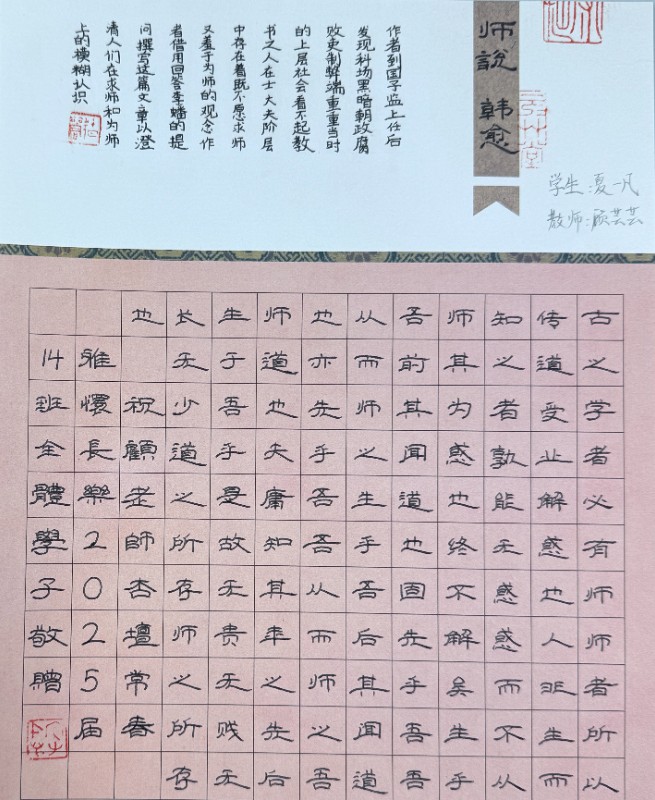 师説 韩愈
作者到国子监上任后
发现科场黑暗朝政腐
败吏制弊端重重当时
的上层社会看不起教
书之人在士大夫阶层
中存在着既不愿求师
又羞于为师的观念作
者借用回答李蟠的提
问撰写这篇文章以澄
清人们在求师和为师
上的模糊认识
学生:夏一凡
教师:顾芸芸
古之学者必有师师者所以
传道受业解惑也人非生而
知之者孰能无惑惑而不从
师其为惑也终不解矣生乎
吾前其闻道也固先乎吾吾
从而师之生乎吾后其闻道
也亦先乎吾吾从而师之吾
师道也夫庸知其年之先后
生于吾乎是故无贵无贱无
长无少道之所存师之所存
也 祝顧老師杏壇常春
雅懷長樂2025届
14班全體學子敬贈